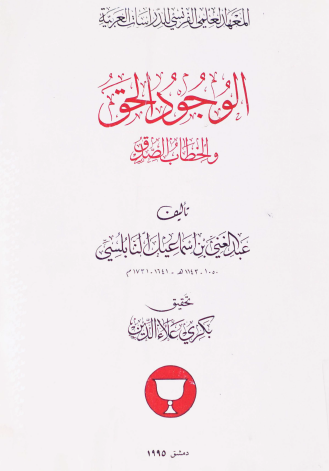 المعهد العلمي الفرنسي للدراسات العربية
الوجود الحق
والخطاب الصدق
تأليف
عبد الغني بن اسماعيل النابلسي
١٠٥٠-١١٤٣هـ - ١٦٤١-١٧٣١م
تحقيق
بكري علاء الدين
دمشق ١٩٩٥